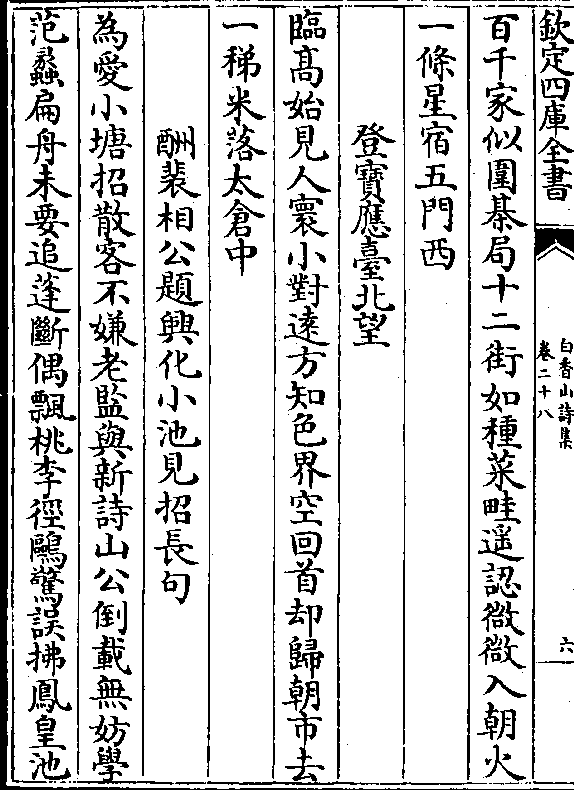 欽定四庫全書
白香山詩集
卷二十八
六
百千家似圍棊局十二街如種菜畦遥認微微入朝火
一條星宿五門西
登寶應臺北望
臨髙始見人寰小對逺方知色界空回首却歸朝市去
一稊米落太倉中
酬裴相公題興化小池見招長句
為愛小塘招散客不嫌老監與新詩山公倒載無妨學
范蠡扁舟未要追蓬斷偶飄桃李徑鷗驚誤拂鳳皇池